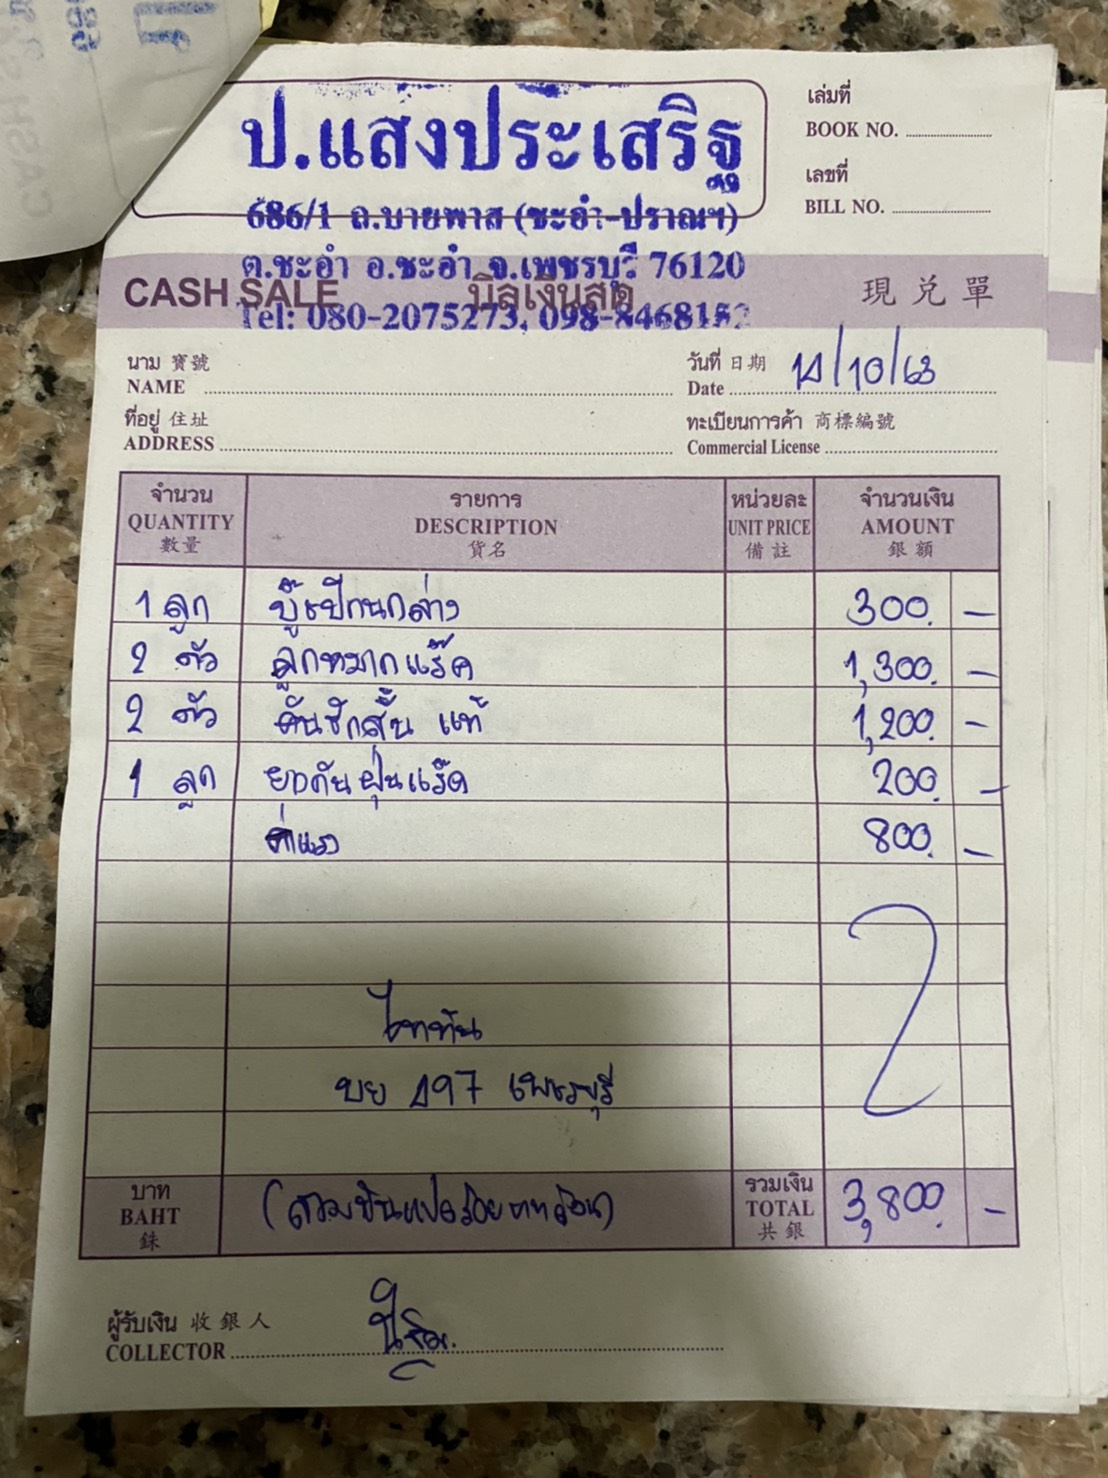 ป.แสงประเสริฐ
686/1 ถ.บายพาส (ชะอำ-ปราณฯ)
ต.ชะอำ อ.ชะอำ จ.เพชรบุรี 76120
Tel: 080-2075273, 098-8468152
เล่มที่
BOOK NO.
เลขที่
BILL NO.
CASH SALE บิลเงินสด 現兌單
นาม 寶號
NAME
วันที่ 日期
Date 14/10/63
ที่อยู่ 住址
ADDRESS
ทะเบียนการค้า 商標編號
Commercial License
จำนวน รายการ หน่วยละ จำนวนเงิน
QUANTITY DESCRIPTION UNIT PRICE AMOUNT
數量 貨名 備註 銀額
1 ลูก บู๊ชปีกนกล่าง 300. —
2 ตัว ลูกหมากแร็ค 1,300. —
2 ตัว คันชักสั้น แท้ 1,200. —
1 ลูก ยางกันฝุ่นแร็ค 200. —
ค่าแรง 800. —
ไททัน
บย 197 เพชรบุรี
บาท
BAHT
銖
(สามพันแปดร้อยบาทถ้วน)
รวมเงิน
TOTAL
共銀
3,800. —
ผู้รับเงิน 收銀人
COLLECTOR